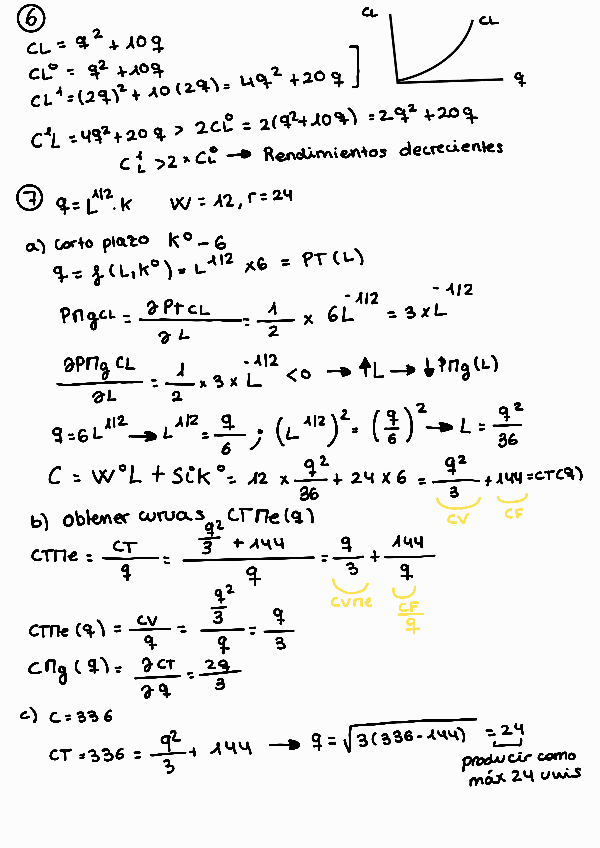 6
CL
CL
q
CL = q² + 10q
CL⁰ = q² + 10q
CL¹ = (2q)² + 10(2q) = 4q² + 20q
C¹L = 4q² + 20q > 2CL⁰ = 2(q² + 10q) = 2q² + 20q
C¹L > 2 × CL⁰ → Rendimientos decrecientes
7 q = L^1/2 · K W = 12, r = 24
a) corto plazo K⁰ - 6
q = f(L, K⁰) = L^1/2 × 6 = PT(L)
PMgCL = ∂PTCL / ∂L = 1/2 × 6L^-1/2 = 3 × L^-1/2
∂PMgCL / ∂L = 1/2 × 3 × L^-1/2 < 0 → ↑L → ↓PMg(L)
q = 6L^1/2 → L^1/2 = q/6 ; (L^1/2)² = (q/6)² → L = q²/36
C = W⁰L + SiK⁰ = 12 × q²/36 + 24 × 6 = q²/3 + 144 = CT(q)
CV CF
b) Obtener curvas CTMe(q)
CTMe = CT/q = (q²/3 + 144)/q = q/3 + 144/q
CVMe CF/q
CTMe(q) = CV/q = (q²/3)/q = q/3
CMg(q) = ∂CT/∂q = 2q/3
c) C = 336
CT = 336 = q²/3 + 144 → q = √3(336 - 144) = 24
producir como
máx 24 unis